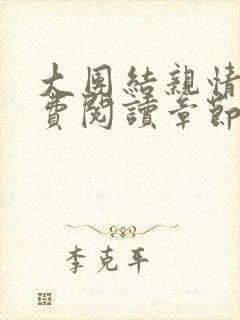 大團結親情
費閱讀章節
李克平